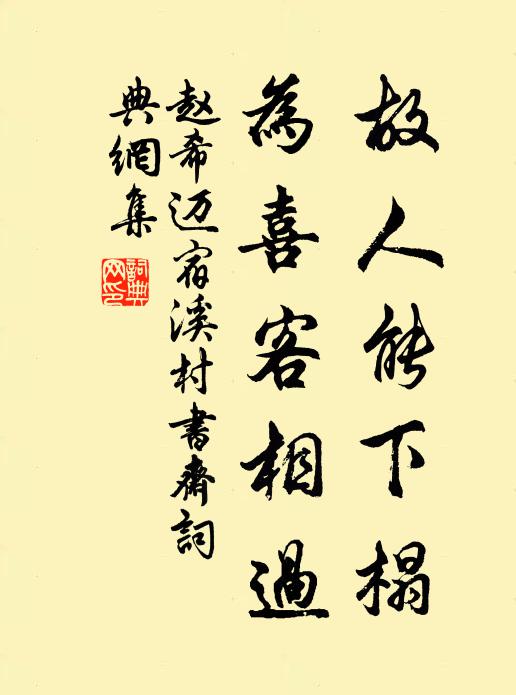 故人能下榻
為喜客相過
赵希迈宿溪村書齋詞
典網集
詞典
网印